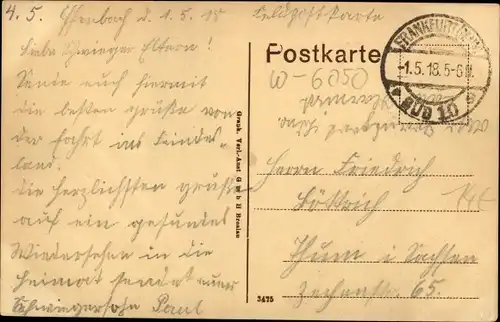 4. 5. Offenbach d. 1. 5. 18
Liebe Schwieger Eltern!
Sende euch hiermit
die besten Grüße von
der Fahrt ins Feindes-
land.
die herzlichsten Grüße
auf ein gesundes
Wiedersehen in die
Heimat sendet euer
Schwiegersohn Paul
Feldpostkarte
Postkarte
FRANKFURT
-1.5.18.5-6N.
BÜD 10
W-6050
Gesch. Verl.-Anst. G. m. b. H. Breslau
Herrn Friedrich
Böttrich
Thum i Sachsen
Zechenstr. 65.
3475